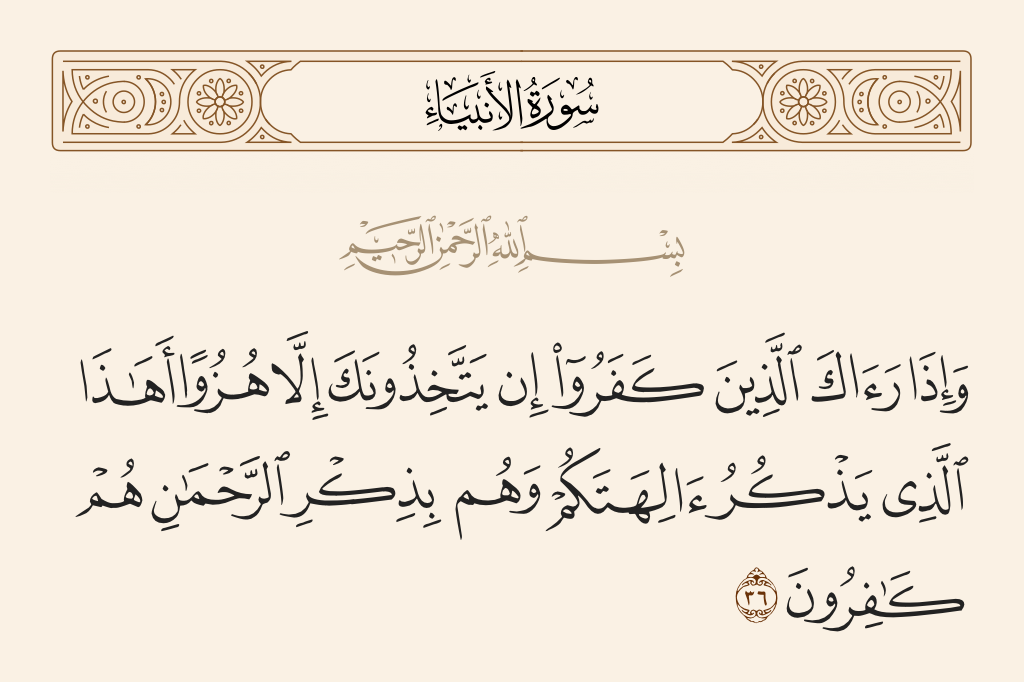 سُورَةُ الأَنبِيَاءِ
بِسْمِ ٱللَّهِ ٱلرَّحْمَٰنِ ٱلرَّحِيمِ
وَإِذَا رَءَاكَ ٱلَّذِينَ كَفَرُوٓا۟ إِن يَتَّخِذُونَكَ إِلَّا هُزُوًا أَهَٰذَا
ٱلَّذِى يَذْكُرُ ءَالِهَتَكُمْ وَهُم بِذِكْرِ ٱلرَّحْمَٰنِ هُمْ
كَٰفِرُونَ ٣٦